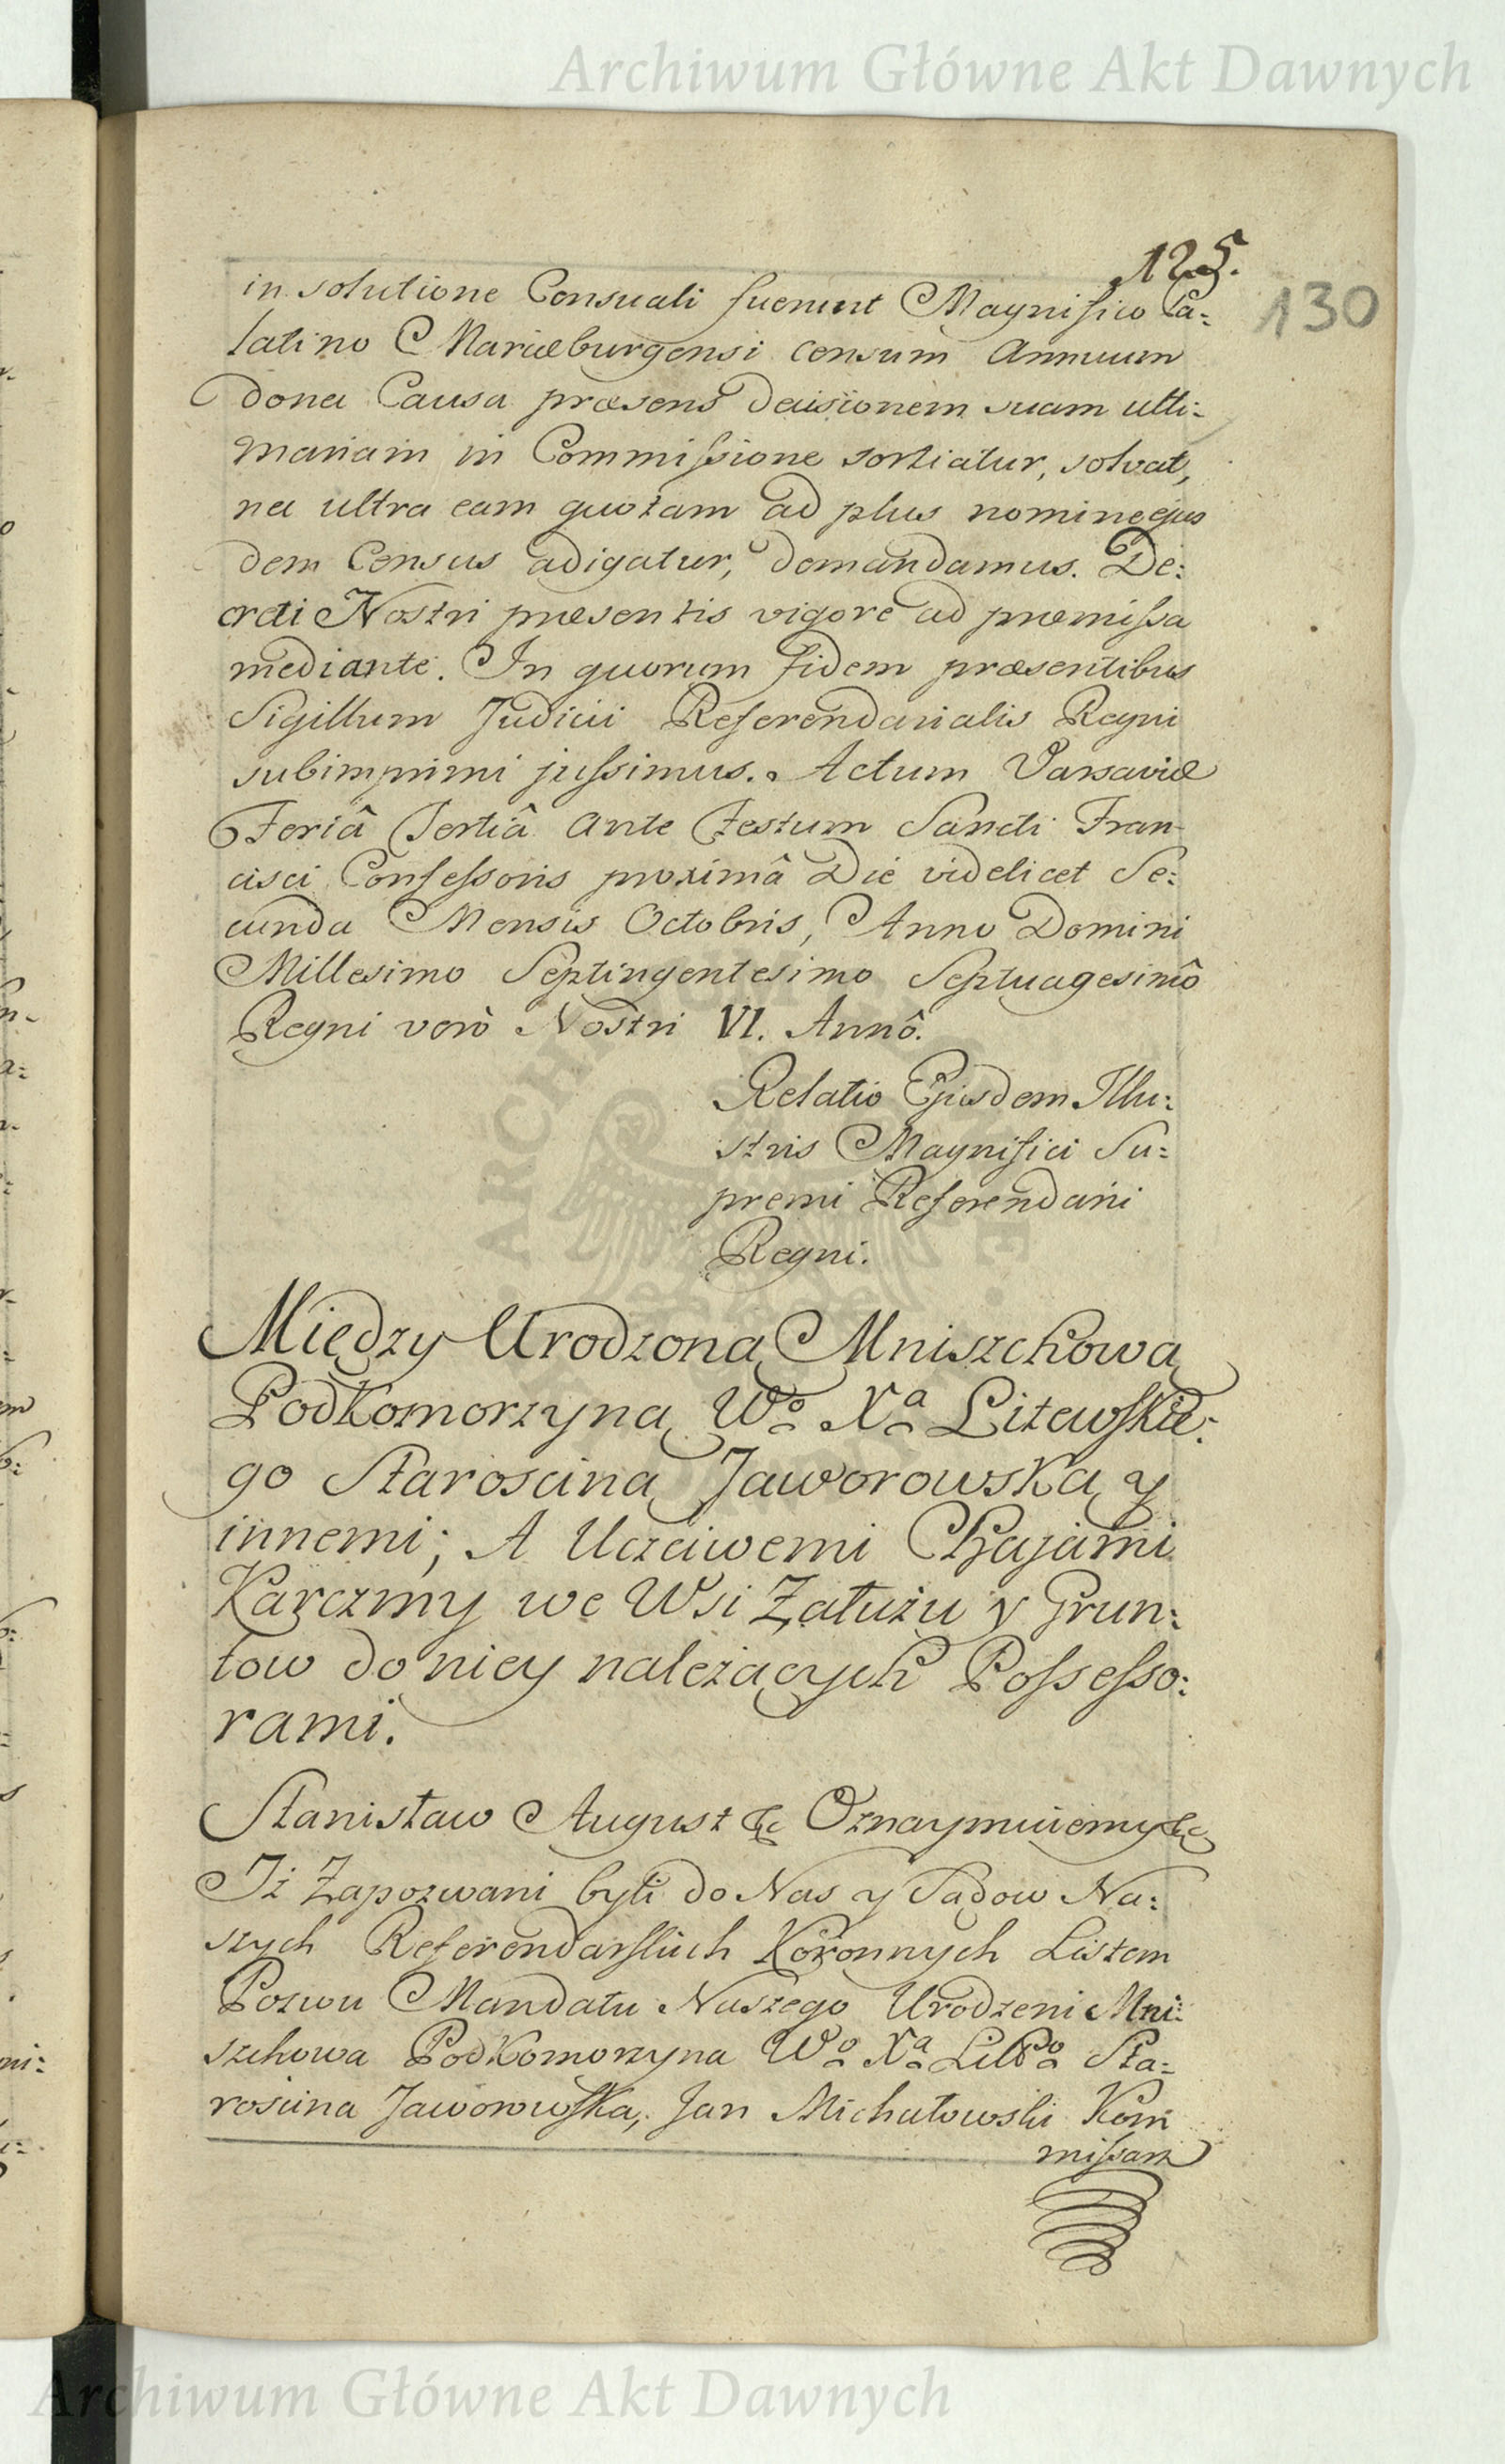 Archiwum Główne Akt Dawnych
125.
130
in solutione Consuali fuerint Magnifico Pa:
latino Mariæburgensi censum Annuum
donec Causa præsens decisionem suam ulti:
mariam in Commissione sortiatur, solvat,
nec ultra eam quotam ad plus nomine ejus
dem Census adigatur, demandamus. De:
creti Nostri præsentis vigore ad præmissa
mediante. In quorum fidem præsentibus
Sigillum Judicii Referendarialis Regni
subimprimi jussimus. Actum Varsaviæ
Feriâ Tertiâ Ante Festum Sancti Fran
cisci Confessoris proximâ Die videlicet Se:
cunda Mensis Octobris, Anno Domini
Millesimo Septingentesimo Septuagesimô
Regni verò Nostri VI. Annô.
Relatio Ejusdem Illu:
stris Magnifici Su:
premi Referendarii
Regni.
Między Urodzoną Mniszchową
Podkomorzyną Wo Xa Litewskie:
go Starosciną Jaworowską y
innemi; A Uczciwemi Chajami
Karczmy we Wsi Załużu y Grun:
tow do niey należących Possesso:
rami.
Stanisław August &c Oznaymuiemy &c
Iż Zapozwani byli do Nas y Sądow Na:
szych Referendarskich Koronnych Listem
Pozwu Mandatu Naszego Urodzeni Mni:
szchowa Podkomorzyna Wo Xa Littgo Sta:
roscina Jaworowska, Jan Michałowski Kom
missarz
Archiwum Główne Akt Dawnych